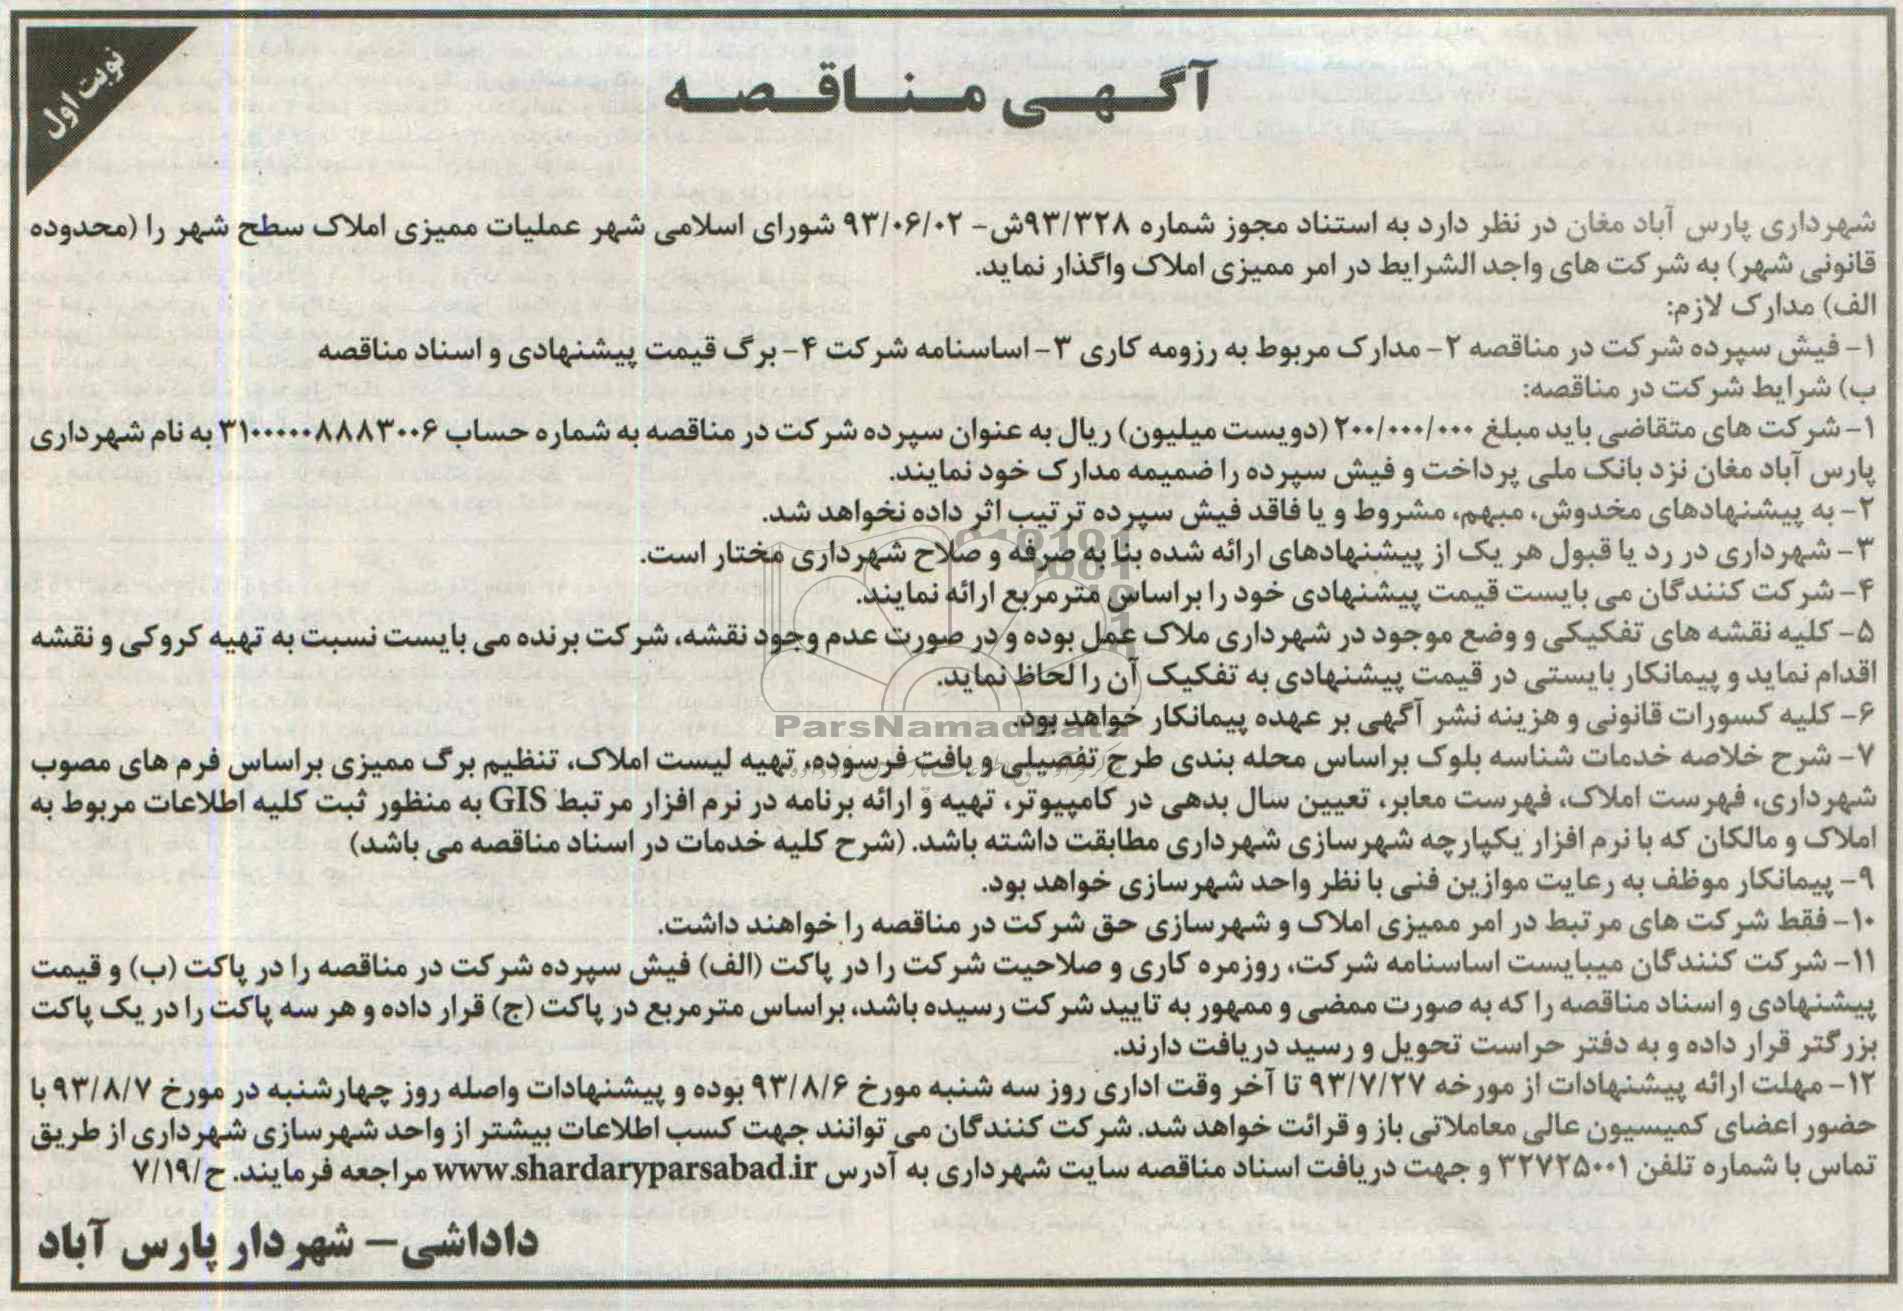 نوبت اول
آگهی مناقصه
شهرداری پارس آباد مغان در نظر دارد به استناد مجوز شماره ۹۳/۳۲۸ش- ۹۳/۰۶/۰۲ شورای اسلامی شهر عملیات ممیزی املاک سطح شهر را (محدوده
قانونی شهر) به شرکت های واجد الشرایط در امر ممیزی املاک واگذار نماید.
الف) مدارک لازم:
۱- فیش سپرده شرکت در مناقصه ۲- مدارک مربوط به رزومه کاری ۳- اساسنامه شرکت ۴- برگ قیمت پیشنهادی و اسناد مناقصه
ب) شرایط شرکت در مناقصه:
۱- شرکت های متقاضی باید مبلغ ۲۰۰/۰۰۰/۰۰۰ (دویست میلیون) ریال به عنوان سپرده شرکت در مناقصه به شماره حساب ۳۱۰۰۰۰۰۸۸۸۳۰۰۶ به نام شهرداری
پارس آباد مغان نزد بانک ملی پرداخت و فیش سپرده را ضمیمه مدارک خود نمایند.
۲- به پیشنهادهای مخدوش، مبهم، مشروط و یا فاقد فیش سپرده ترتیب اثر داده نخواهد شد.
۳- شهرداری در رد یا قبول هر یک از پیشنهادهای ارائه شده بنا به صرفه و صلاح شهرداری مختار است.
۴- شرکت کنندگان می بایست قیمت پیشنهادی خود را براساس مترمربع ارائه نمایند.
۵- کلیه نقشه های تفکیکی و وضع موجود در شهرداری ملاک عمل بوده و در صورت عدم وجود نقشه، شرکت برنده می بایست نسبت به تهیه کروکی و نقشه
اقدام نماید و پیمانکار بایستی در قیمت پیشنهادی به تفکیک آن را لحاظ نماید.
۶- کلیه کسورات قانونی و هزینه نشر آگهی بر عهده پیمانکار خواهد بود.
ParsNamadData
۷- شرح خلاصه خدمات شناسه بلوک براساس محله بندی طرح تفصیلی و بافت فرسوده، تهیه لیست املاک، تنظیم برگ ممیزی براساس فرم های مصوب
شهرداری، فهرست املاک، فهرست معابر، تعیین سال بدهی در کامپیوتر، تهیه و ارائه برنامه در نرم افزار مرتبط GIS به منظور ثبت کلیه اطلاعات مربوط به
املاک و مالکان که با نرم افزار یکپارچه شهرسازی شهرداری مطابقت داشته باشد. (شرح کلیه خدمات در اسناد مناقصه می باشد)
۹- پیمانکار موظف به رعایت موازین فنی با نظر واحد شهرسازی خواهد بود.
۱۰- فقط شرکت های مرتبط در امر ممیزی املاک و شهرسازی حق شرکت در مناقصه را خواهند داشت.
۱۱- شرکت کنندگان میبایست اساسنامه شرکت، روزمره کاری و صلاحیت شرکت را در پاکت (الف) فیش سپرده شرکت در مناقصه را در پاکت (ب) و قیمت
پیشنهادی و اسناد مناقصه را که به صورت ممضی و ممهور به تایید شرکت رسیده باشد، براساس مترمربع در پاکت (ج) قرار داده و هر سه پاکت را در یک پاکت
بزرگتر قرار داده و به دفتر حراست تحویل و رسید دریافت دارند.
۱۲- مهلت ارائه پیشنهادات از مورخه ۹۳/۷/۲۷ تا آخر وقت اداری روز سه شنبه مورخ ۹۳/۸/۶ بوده و پیشنهادات واصله روز چهارشنبه در مورخ ۹۳/۸/۷ با
حضور اعضای کمیسیون عالی معاملاتی باز و قرائت خواهد شد. شرکت کنندگان می توانند جهت کسب اطلاعات بیشتر از واحد شهرسازی شهرداری از طریق
تماس با شماره تلفن ۳۲۷۲۵۰۰۱ و جهت دریافت اسناد مناقصه سایت شهرداری به آدرس www.shardaryparsabad.ir مراجعه فرمایند. ح/۷/۱۹
داداشی- شهردار پارس آباد